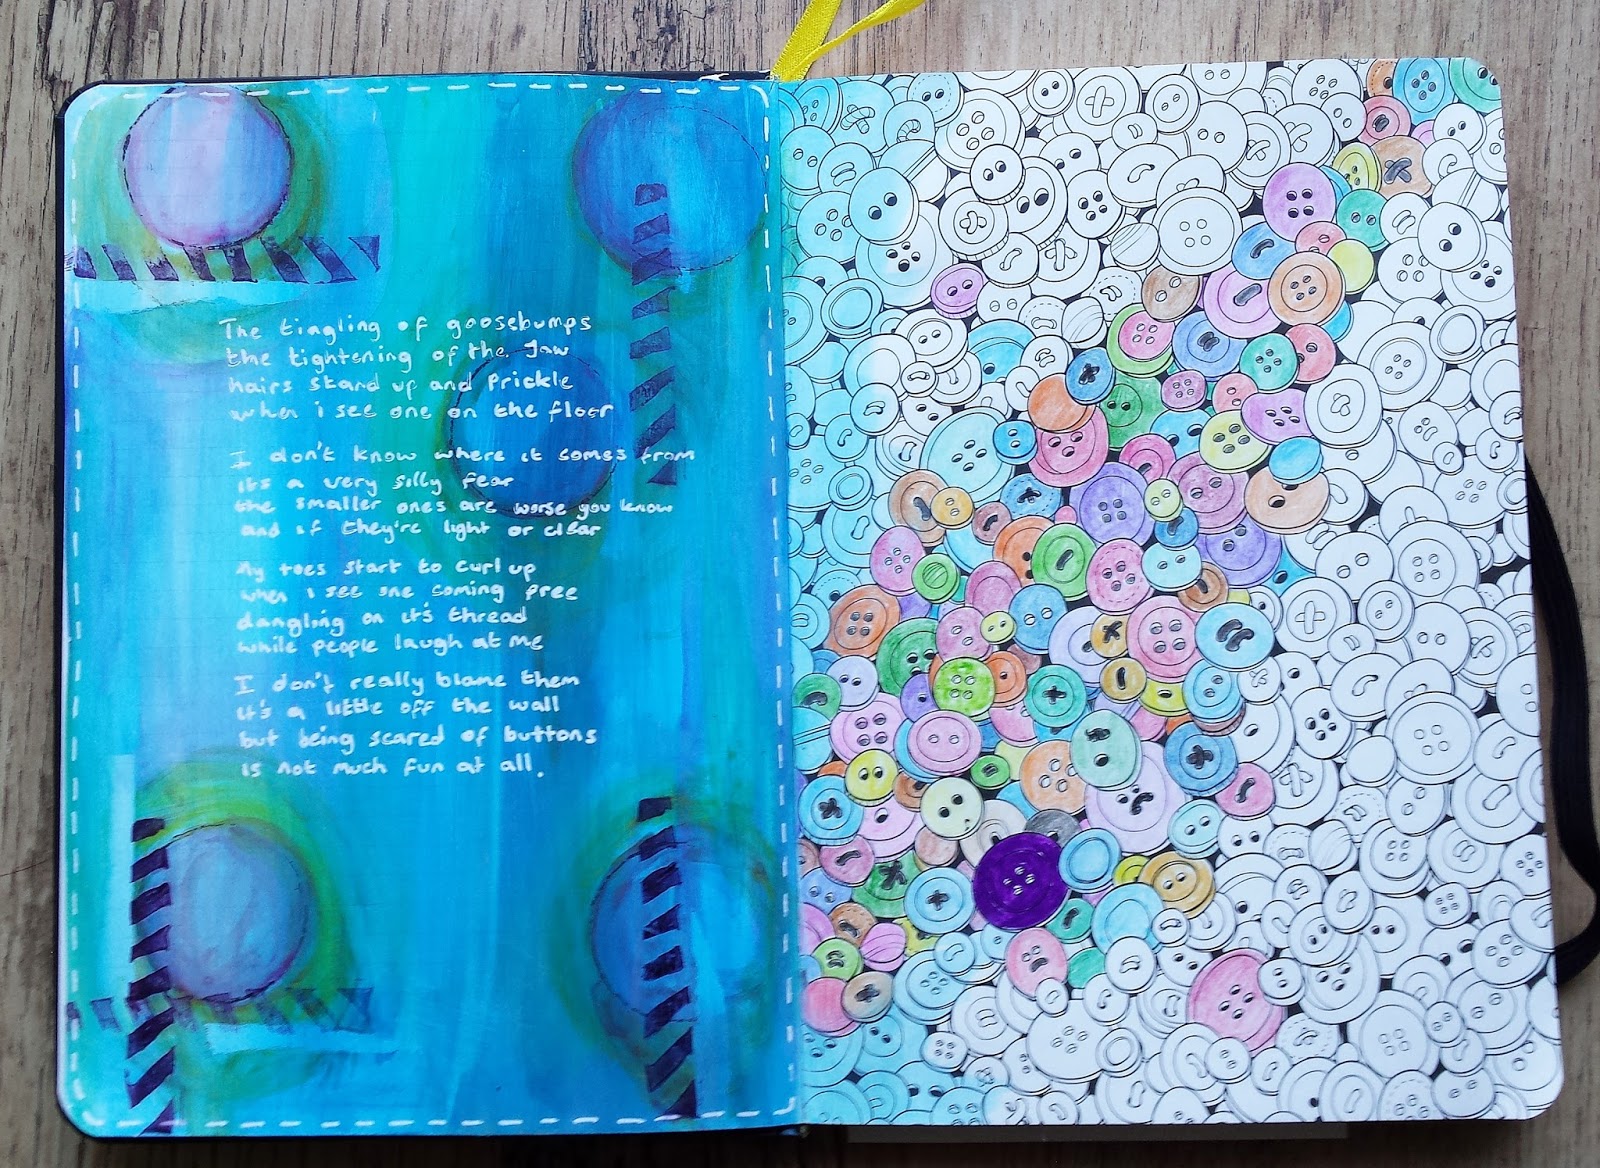 The tingling of goosebumps
the tightening of the Jaw
hairs stand up and Prickle
when i see one on the floor
I don't know where it comes from
its a very silly fear
the smaller ones are worse you know
and if they're light or clear
My toes start to curl up
when i see one coming free
dangling on it's thread
while people laugh at me
I don't really blame them
it's a little off the wall
but being scared of buttons
is not much fun at all.